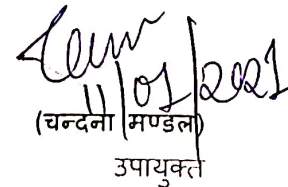 11/01/2021
(चन्दना मण्डल)
उपायुक्त